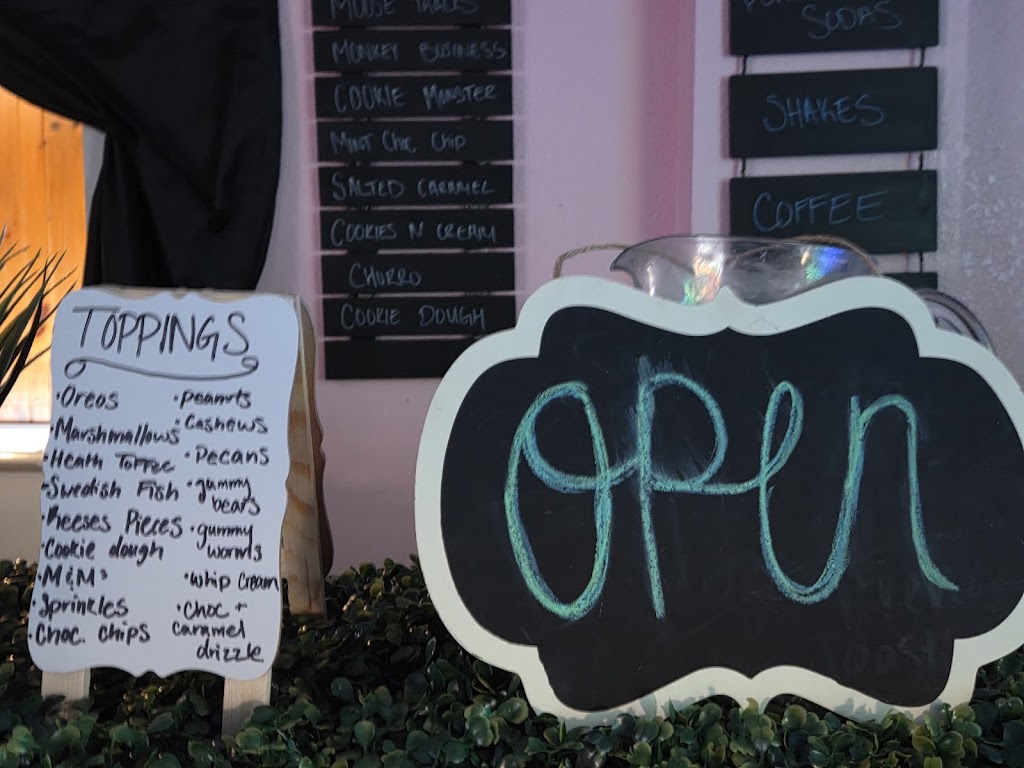 MOOSE TRACKS
MONKEY BUSINESS
COOKIE MONSTER
MINT CHOC CHIP
SALTED CARAMEL
COOKIES N CREAM
CHURRO
COOKIE DOUGH
SODAS
SHAKES
COFFEE
TOPPINGS
·Oreos
·Marshmallows
·Heath Toffee
·Swedish Fish
·Reeses Pieces
·Cookie dough
·M&M's
·Sprinkles
·Choc. Chips
·peanuts
·Cashews
·Pecans
·gummy
bears
·gummy
worms
·whip cream
·Choc +
caramel
drizzle
open